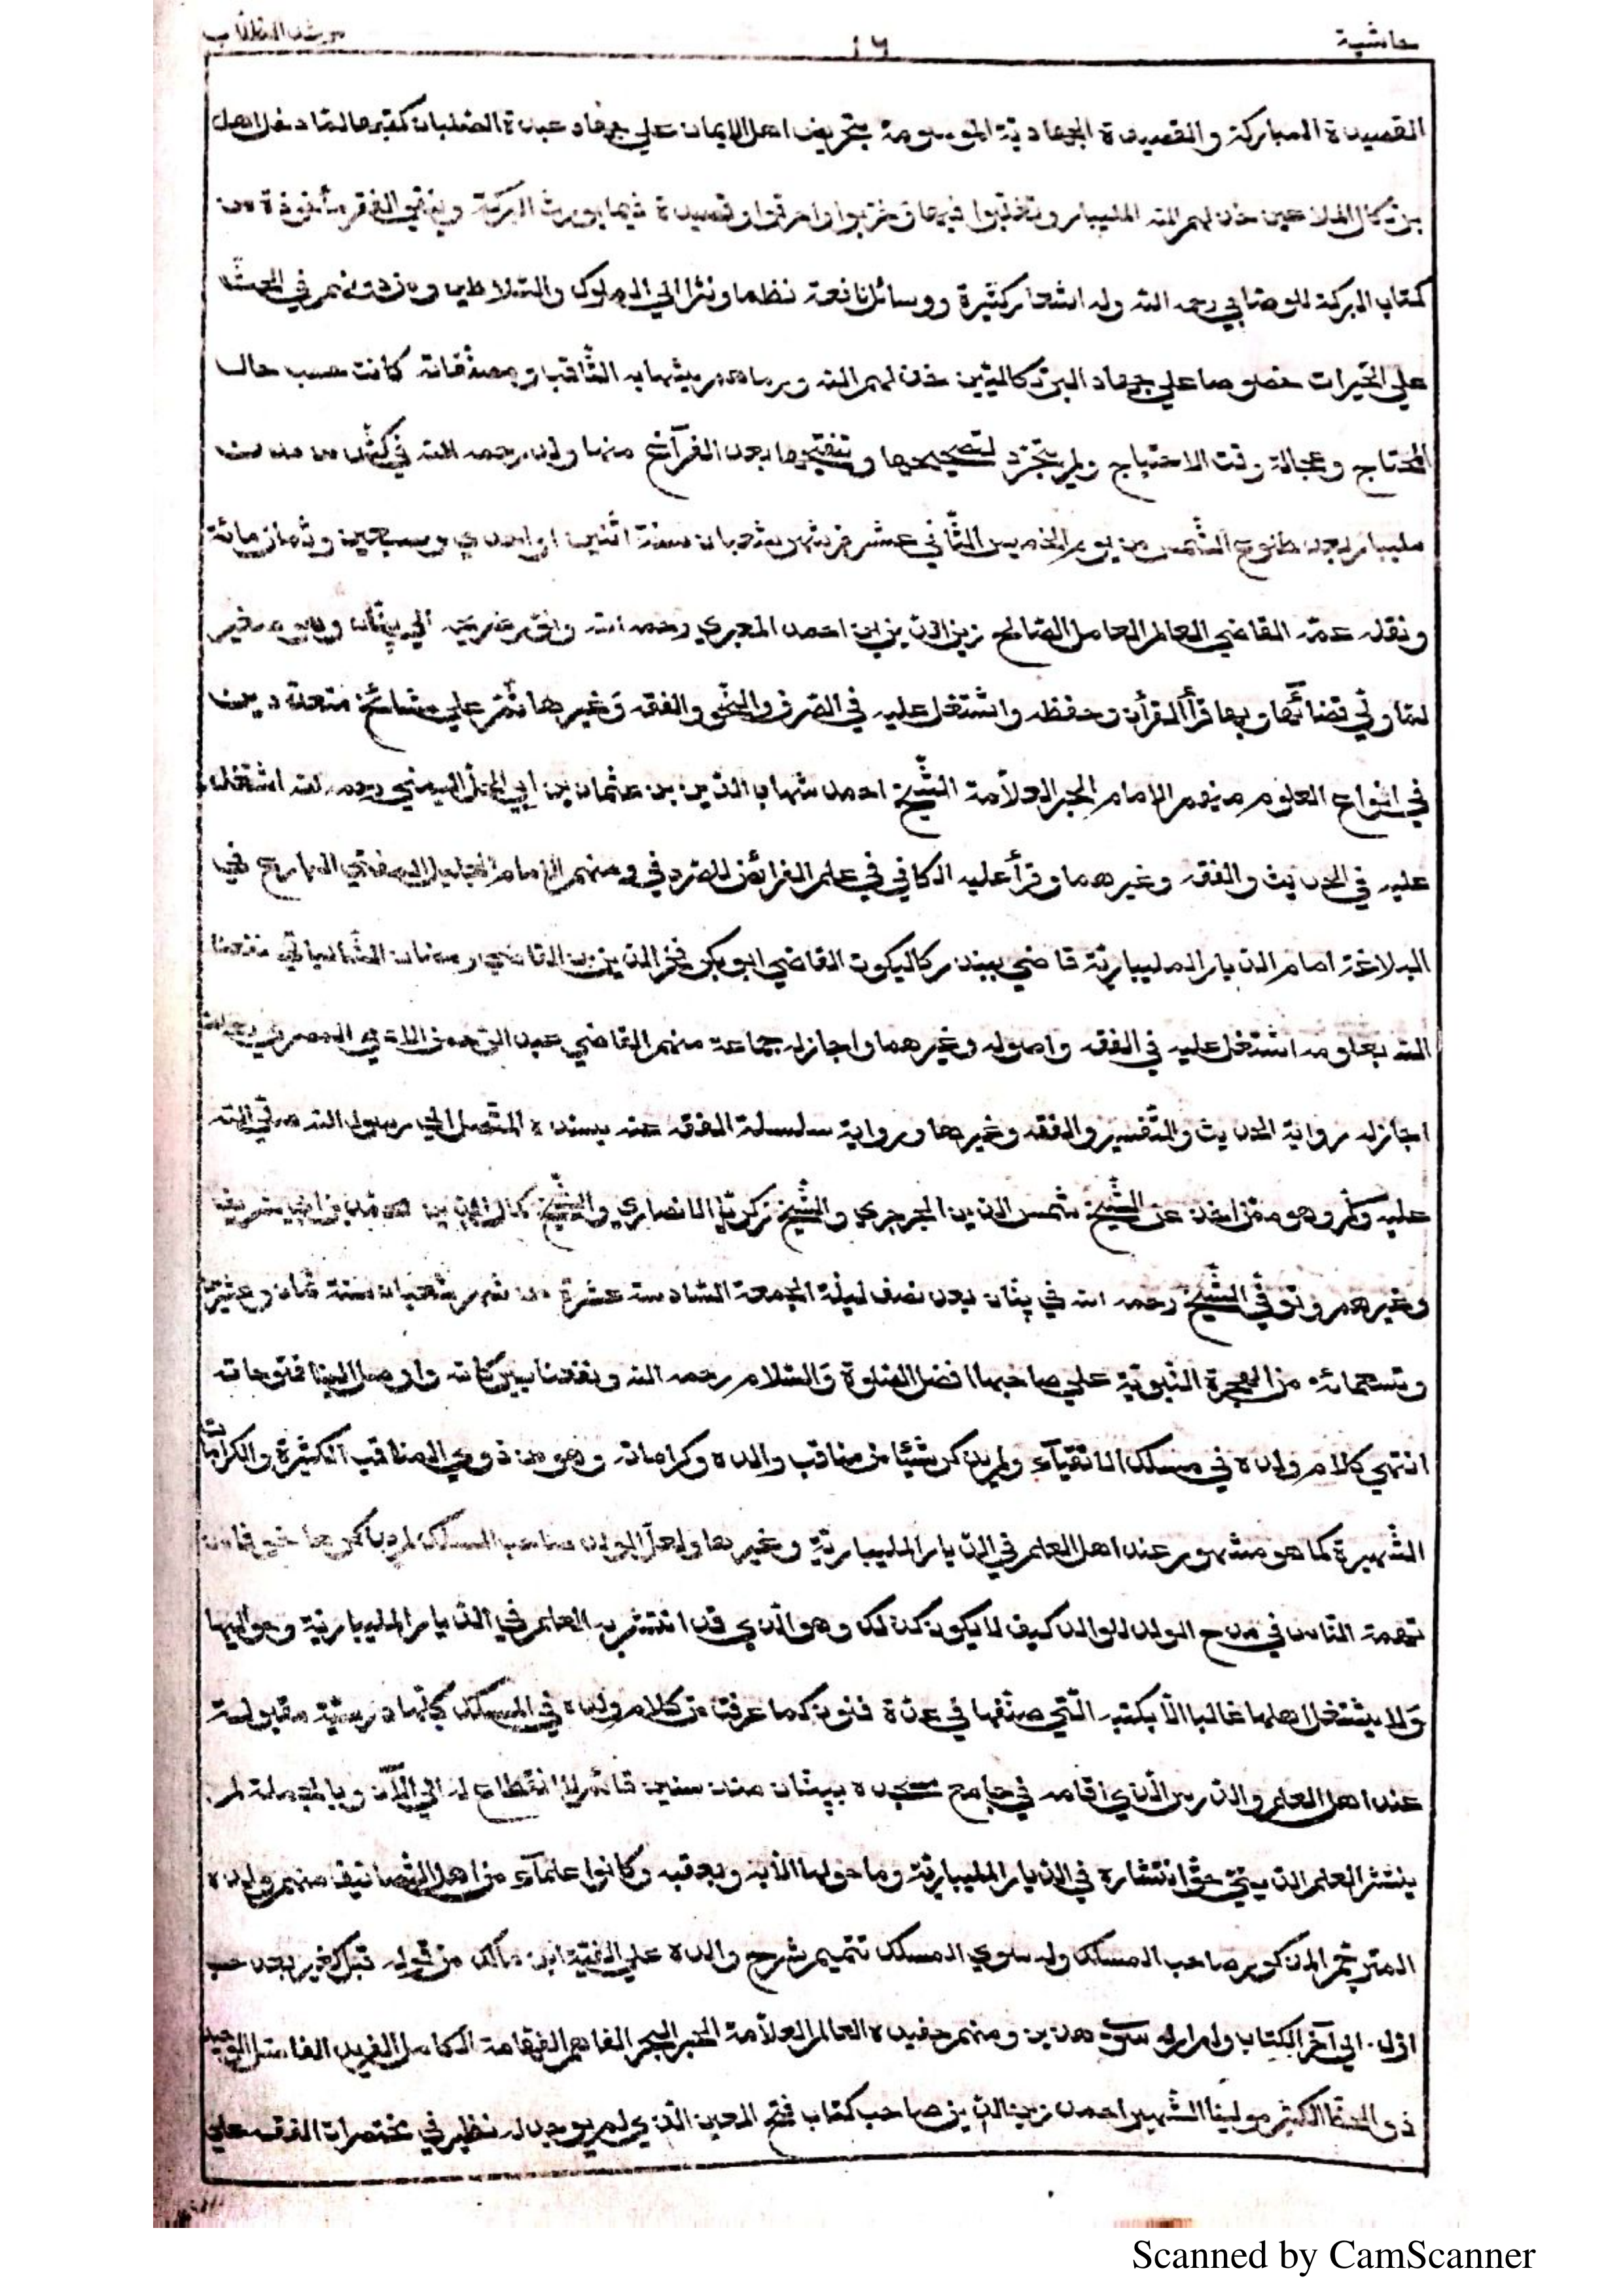 حاشية ١٦ مرشد الطلاب
القصيدة المباركة والقصيدة الجهادية الموسومة بتحريض اهل الايمان علي جهاد عبدة الصلبان كقبرها لما دخل اهل
بزتكال الملاعين خذلهم الله المليبار وتخربوا فيها وخربوا واحرقوا وقصيدة فيما يورث البركة وينفي الفقر مأخوذة من
كتاب البركة للوصابي رحمه الله وله اشعار كثيرة ورسائل نافعة نظما ونثرا الي الملوك والسلاطين ومن دونهم في الحث
علي الخيرات خصوصا علي جهاد البرتكاليين خذلهم الله ورماهم بشهابه الثاقب ومصنفاته كانت حسب حال
المحتاج وعجالة وقت الاحتياج ولم يتجرد لتصحيحها وتنقيحها بعد الفراغ منها ولد رحمه الله في كشن من مدن
مليبار بعد طلوع الشمس من يوم الخميس الثاني عشر من شهر شعبان سنة اثنين او احدي وسبعين وثمان مائة
ونقله عمه القاضي العالم العامل الصالح زين الدين بن احمد المعبري رحمه الله الي پنان وهو صغير
لما ولي قضائها وبها قرأ القرأن وحفظه واشتغل عليه في الصرف والنحو والفقه وغيرها ثم علي مشائخ متعددين
في انواع العلوم منهم الامام الحبر العلامة الشيخ احمد شهاب الدين بن عثمان بن ابي الحل اليمني رحمه الله اشتغل
عليه في الحديث والفقه وغيرهما وقرأ عليه الكافي في علم الفرائض للصردفي ومنهم الامام الجليل المفتي البارع في
البلاغة امام الديار المليبارية قاضي ببندر كاليكوت القاضي ابو بكر فخر الدين بن القاضي رمضان الشالياتي نفعنا
الله بعلومه اشتغل عليه في الفقه واصوله وغيرهما واجاز له جماعة منهم القاضي عبد الرحمن الادمي المصري
اجاز له رواية الحديث والتفسير والفقه وغيرها ورواية سلسلة الفقه عنه بسنده المتصل الي رسول الله صلي الله
عليه وسلم وهو ممن اخذ عن الشيخ شمس الدين الجوجري والشيخ زكريا الانصاري والشيخ كمال الدين محمد بن ابي شريف
وغيرهم وتوفي الشيخ رحمه الله في پنان بعد نصف ليلة الجمعة السادسة عشرة من شهر شعبان سنة ثمان وعشرين
وتسعمائة من الهجرة النبوية علي صاحبها افضل الصلوة والسلام رحمه الله ونفعنا ببركاته واوصل الينا فتوحاته
انتهي كلام ولده في مسلك الاتقيآء ولم يذكر شيئا من مناقب والده وكراماته وهو من ذوي المناقب الكثيرة والكرامات
الشهيرة كما هو مشهور عند اهل العلم في الديار المليبارية وغيرها ولعل الولد صاحب المسلك لم يذكرها خوفا من
تهمة الناس في مدح الولد للوالد كيف لا يكون كذلك وهو الذي قد انتشر به العلم في الديار المليبارية وحواليها
ولا يشتغل اهلها غالبا الا بكتبه التي صنفها في عدة فنون كما عرفت من كلام ولده في المسلك كلها درسية مقبولة
عند اهل العلم والدرس الذي اقامه في جامع مسجده بپنان منذ سنين قائم لا انقطاع له الي الآن وبالجملة لم
ينتشر العلم الديني حق انتشاره في الديار المليبارية وما حولها الا به وبعقبه وكانوا علمآء من اهل التصانيف منهم ولده
المترجم المذكور صاحب المسلك وله سوي المسلك تتميم شرح والده علي الفية ابن مالك من قوله قبل كغير بعد حسب
اول الي آخر الكتاب ولم ار له سوي هذين ومنهم حفيده العالم العلامة الحبر البحر الفاهم الفهامة الكامل الفريد الفاضل الوحيد
ذي الحظ الكثير مولينا الشهير احمد زين الدين صاحب كتاب فتح المعين الذي لم يوجد له نظير في مختصرات الفقه علي
Scanned by CamScanner